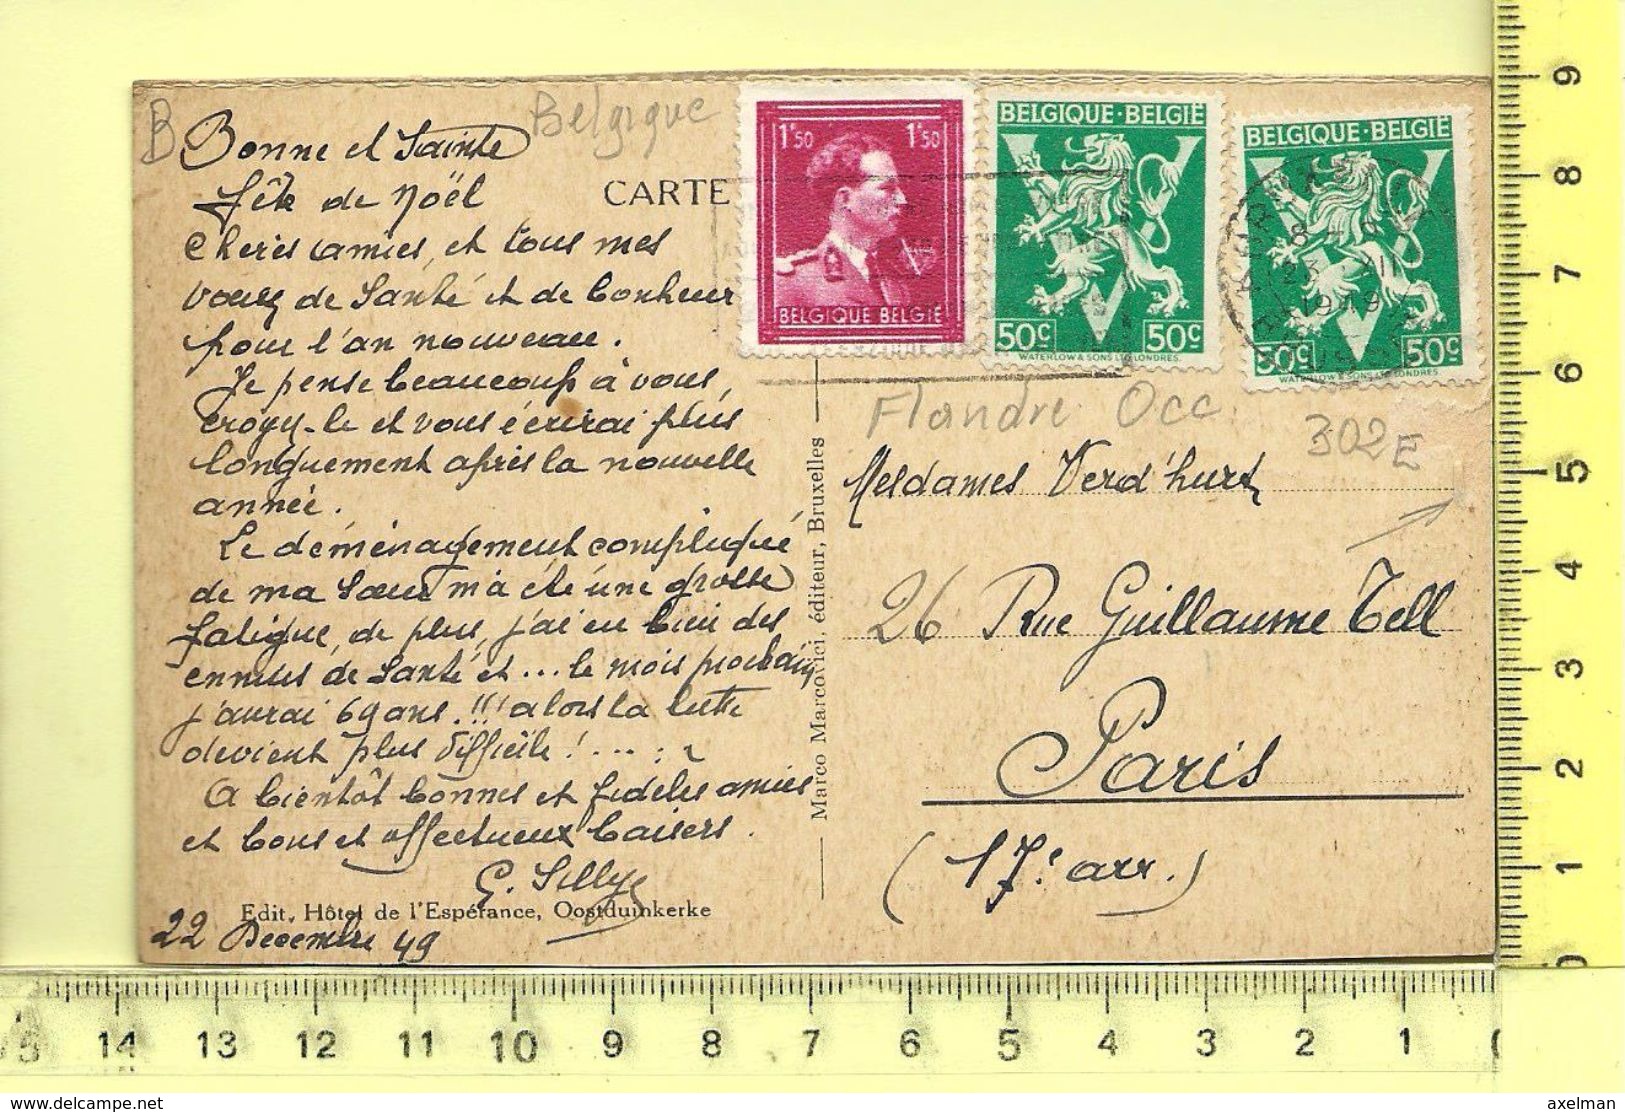 B
Belgique
Bonne et Sainte
fête de Noël
Chéries amies, et tous mes
voeux de Santé et de bonheur
pour l'an nouveau.
Je pense beaucoup à vous,
croyez-le et vous écrirai plus
longuement après la nouvelle
année.
Le déménagement compliqué
de ma Soeur m'a été une grosse
fatigue, de plus, j'ai eu bien des
ennuis de Santé et ... le mois prochain
j'aurai 69 ans.!!! alors la lutte
devient plus difficile! ....
A bientôt bonnes et fidèles amies
et bons et affectueux baisers.
G. Silly
22 Décembre 49
Edit. Hôtel de l'Espérance, Oostduinkerke
CARTE
Marco Marcovici, éditeur, Bruxelles
1F50 1F50
BELGIQUE BELGIË
BELGIQUE·BELGIË
50c 50c
WATERLOW & SONS LTD LONDRES.
BELGIQUE·BELGIË
50c 50c
WATERLOW & SONS LTD LONDRES.
1949
Flandre Occ.
302E
Mesdames Verd'hurt
26 Rue Guillaume Tell
Paris
(17e arr.)
9
8
7
6
5
4
3
2
1
0
15 14 13 12 11 10 9 8 7 6 5 4 3 2 1
www.delcampe.net
axelman